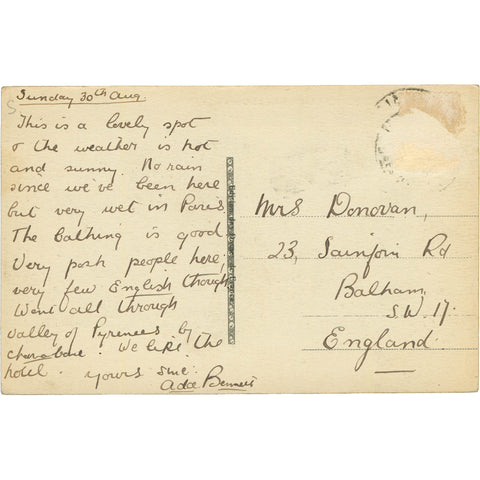 Sunday 30th Aug
This is a lovely spot
& the weather is hot
and sunny. No rain
since we've been here
but very wet in Paris
The bathing is good
Very posh people here,
very few English though
Went all through
valley of Pyrenees by
charabanc. We like the
hotel. yours sinc.
Ada Bennett
Mrs Donovan,
23, Sainfoin Rd
Balham,
S.W. 17.
England.